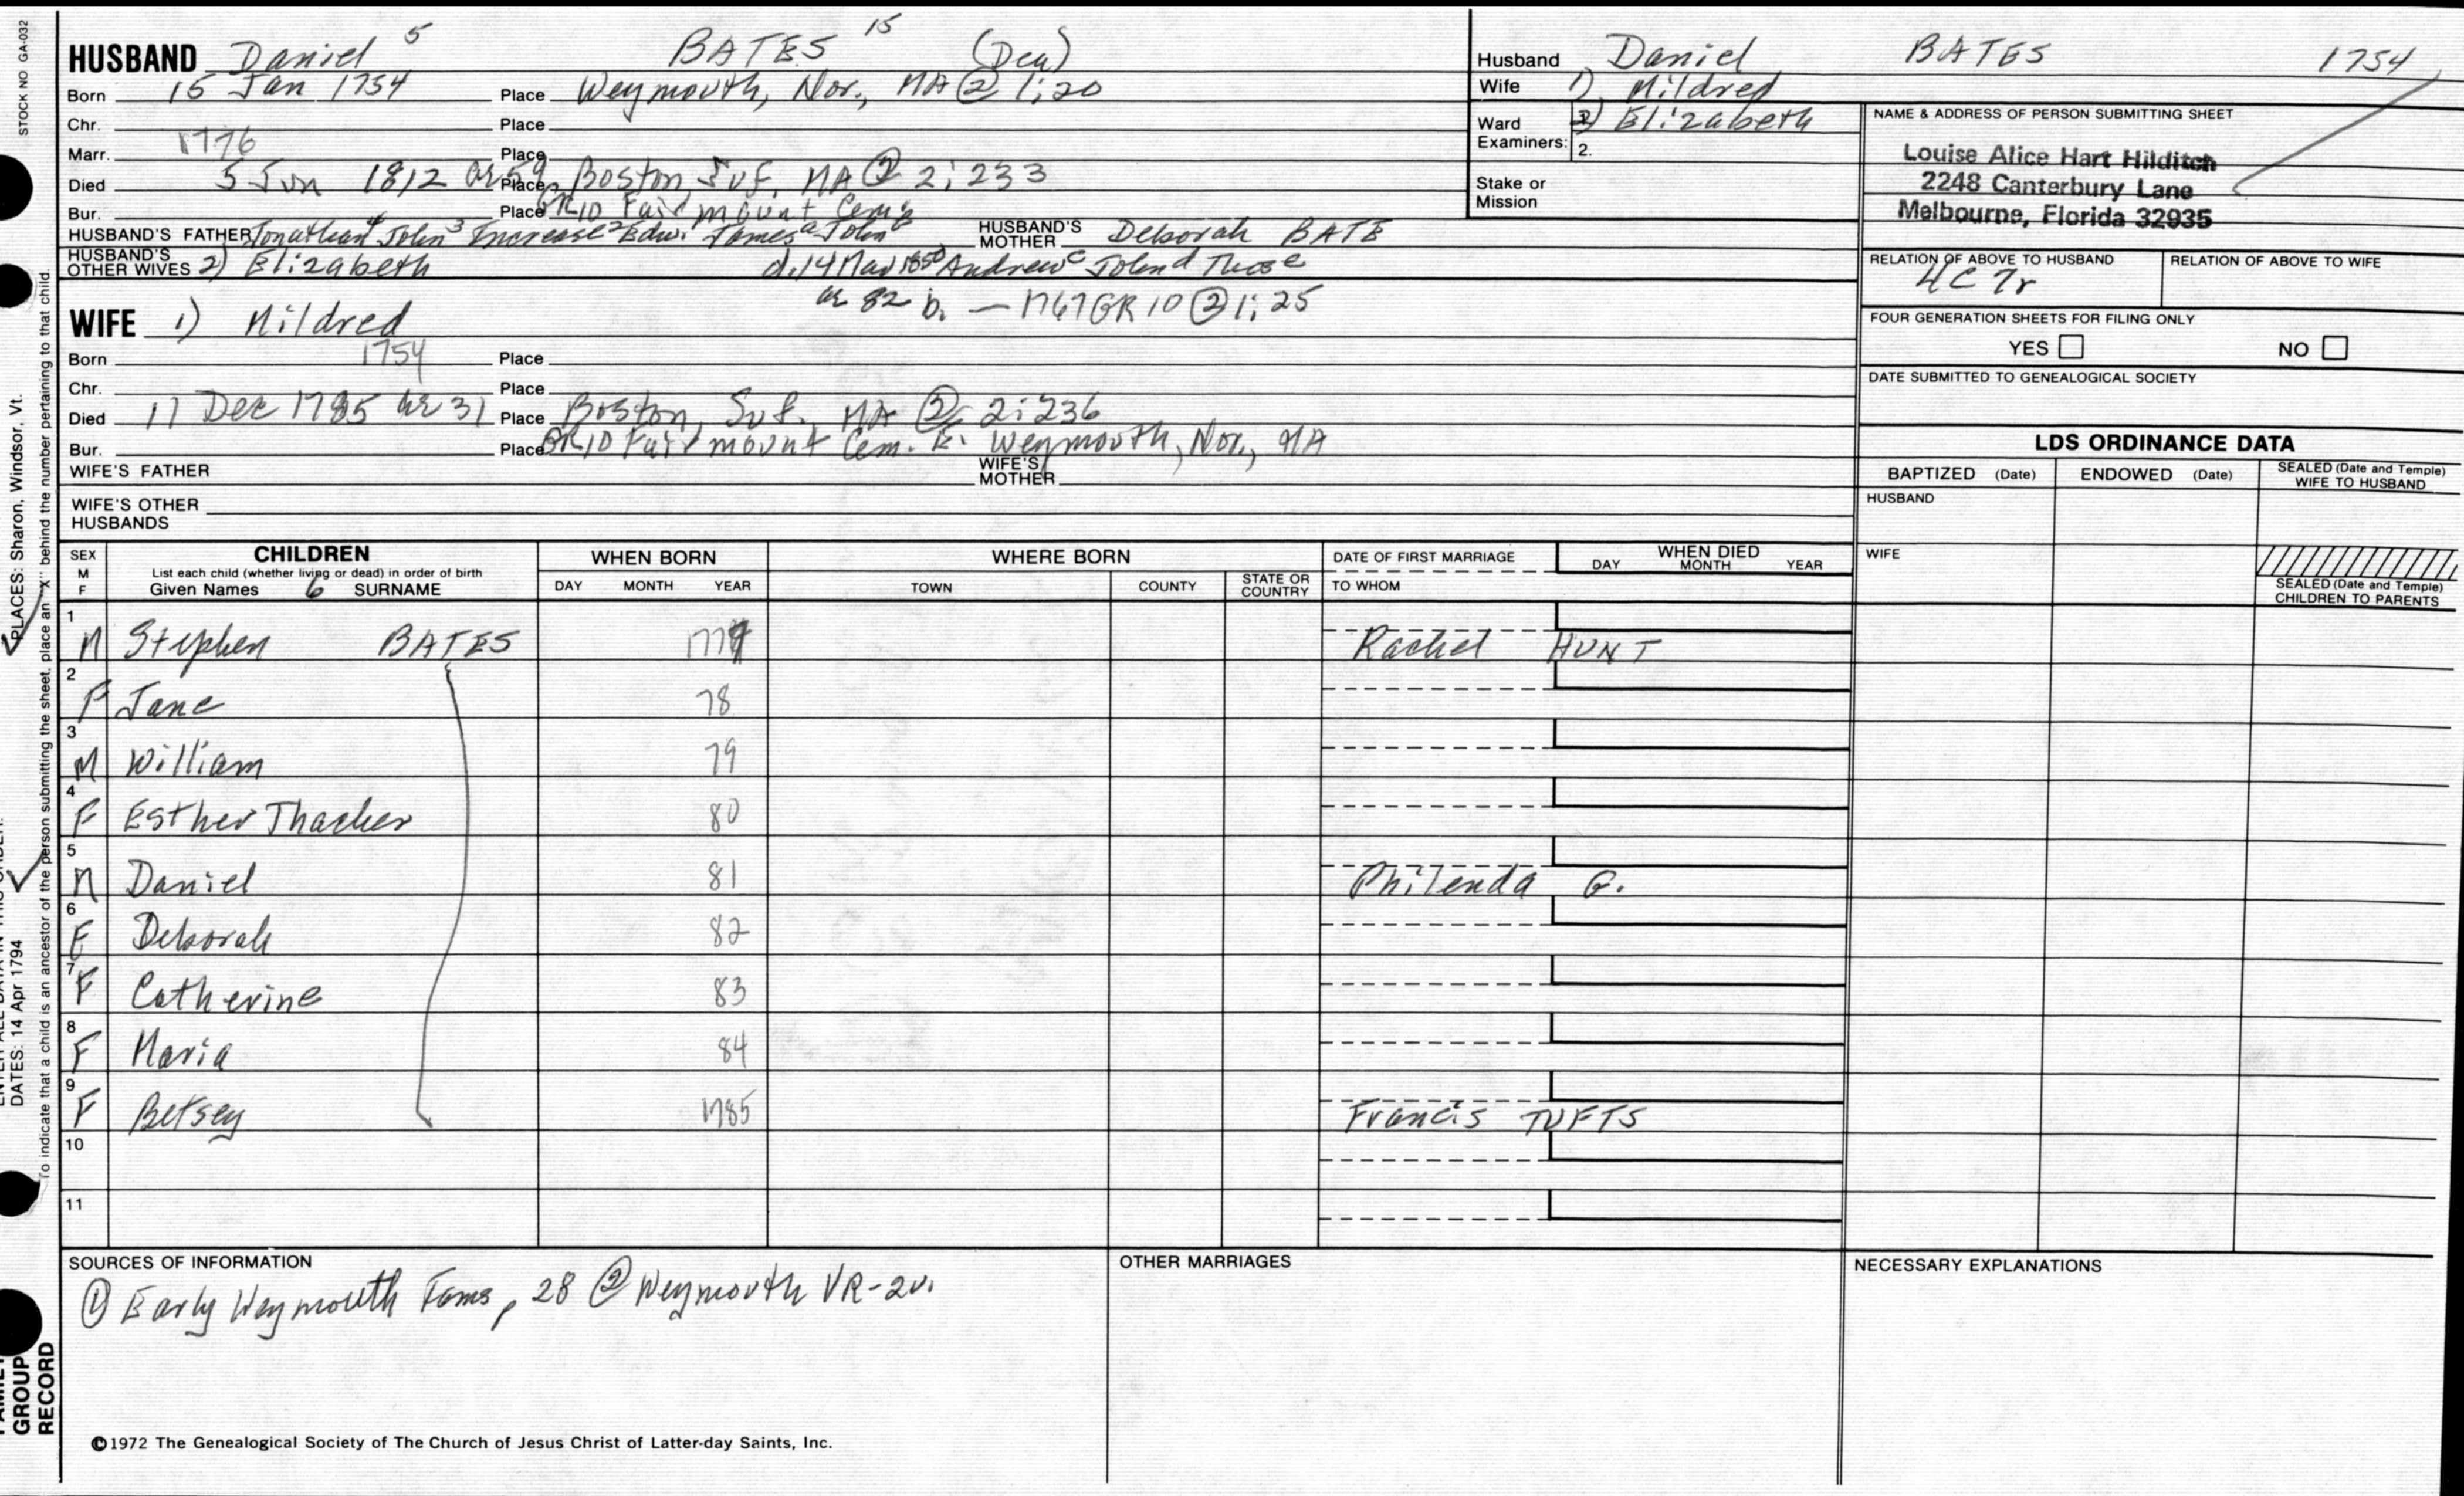 STOCK NO GA-032
HUSBAND Daniel 5 BATES 15 (Dea)
Born 15 Jan 1754 Place Weymouth, Nor., MA @ 1:20
Chr. Place
Marr. 1776 Place
Died 5 Jun 1812 ae 59 Place Boston, Suf. MA ② 2:233
Bur. Place GR10 Fairmount Cem.
HUSBAND'S FATHER Jonathan4 John3 Increase2 Edw.1 James a John b HUSBAND'S MOTHER Deborah BATE
HUSBAND'S OTHER WIVES 2) Elizabeth d. 14 Mar 1850 Andrew c John d Thos e
ae 82 b. — 1767 GR 10 ② 1:25
WIFE 1) Mildred
Born 1754 Place
Chr. Place
Died 11 Dec 1785 ae 31 Place Boston, Suf. MA ② 2:236
Bur. Place GR10 Fairmount Cem. E. Weymouth, Nor., MA
WIFE'S FATHER WIFE'S MOTHER
WIFE'S OTHER HUSBANDS
Husband Daniel BATES 1754
Wife 1) Mildred
Ward Examiners: 2) Elizabeth
2.
Stake or Mission
NAME & ADDRESS OF PERSON SUBMITTING SHEET
Louise Alice Hart Hilditch
2248 Canterbury Lane
Melbourne, Florida 32935
RELATION OF ABOVE TO HUSBAND RELATION OF ABOVE TO WIFE
4C 7r
FOUR GENERATION SHEETS FOR FILING ONLY
YES NO
DATE SUBMITTED TO GENEALOGICAL SOCIETY
LDS ORDINANCE DATA
BAPTIZED (Date) ENDOWED (Date) SEALED (Date and Temple) WIFE TO HUSBAND
HUSBAND
WIFE
SEALED (Date and Temple) CHILDREN TO PARENTS
SEX M F CHILDREN WHEN BORN WHERE BORN DATE OF FIRST MARRIAGE WHEN DIED
List each child (whether living or dead) in order of birth
Given Names 6 SURNAME DAY MONTH YEAR TOWN COUNTY STATE OR COUNTRY TO WHOM DAY MONTH YEAR
1 M Stephen BATES 1777 Rachel HUNT
2 F Jane 78
3 M William 79
4 F Esther Thacher 80
5 M Daniel 81 Philenda G.
6 F Deborah 82
7 F Catherine 83
8 F Maria 84
9 F Betsey 1785 Francis TUFTS
10
11
SOURCES OF INFORMATION
① Early Weymouth Fams, 28 ② Weymouth VR-2v.
OTHER MARRIAGES
NECESSARY EXPLANATIONS
©1972 The Genealogical Society of The Church of Jesus Christ of Latter-day Saints, Inc.
PLACES: Sharon, Windsor, Vt.
DATES: 14 Apr 1794
To indicate that a child is an ancestor of the person submitting the sheet, place an "X" behind the number pertaining to that child.
GROUP
RECORD